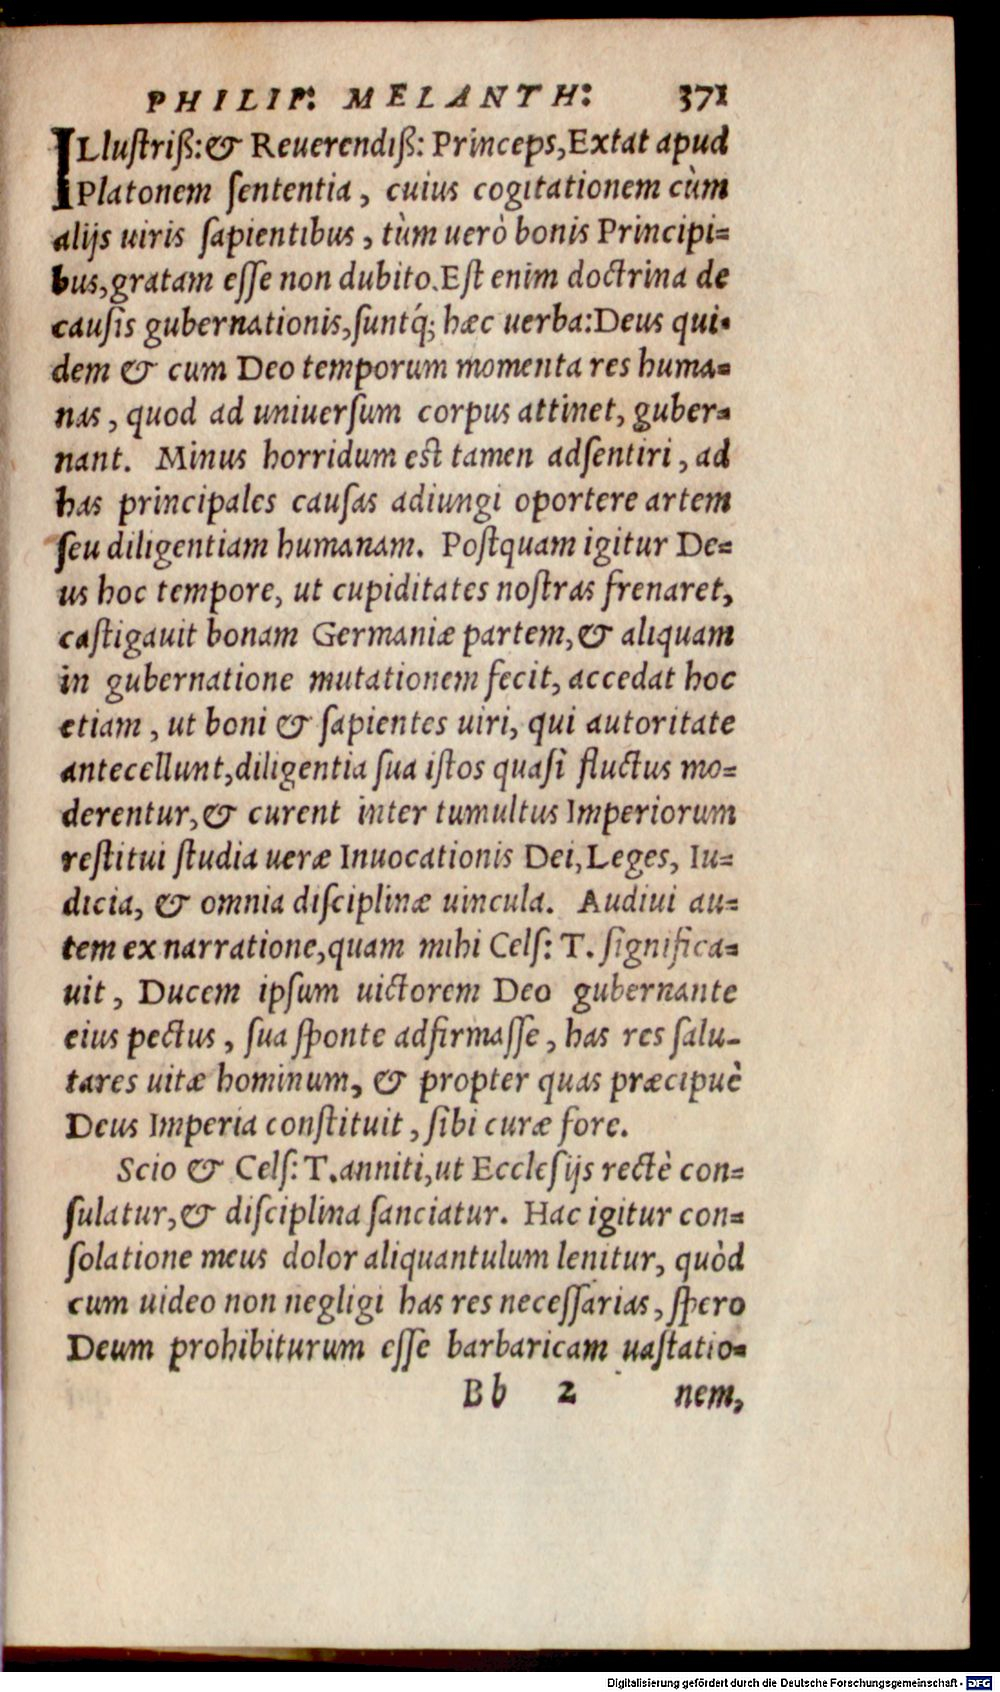 PHILIP: MELANTH: 371
ILlustriß: & Reuerendiß: Princeps, Extat apud
Platonem sententia, cuius cogitationem cùm
alijs uiris sapientibus, tùm uerò bonis Principi=
bus, gratam esse non dubito. Est enim doctrina de
causis gubernationis, suntq́; hæc uerba: Deus qui=
dem & cum Deo temporum momenta res huma=
nas, quod ad uniuersum corpus attinet, guber=
nant. Minus horridum est tamen adsentiri, ad
has principales causas adiungi oportere artem
seu diligentiam humanam. Postquam igitur De=
us hoc tempore, ut cupiditates nostras frenaret,
castigauit bonam Germaniæ partem, & aliquam
in gubernatione mutationem fecit, accedat hoc
etiam, ut boni & sapientes uiri, qui autoritate
antecellunt, diligentia sua istos quasi fluctus mo=
derentur, & curent inter tumultus Imperiorum
restitui studia ueræ Inuocationis Dei, Leges, Iu=
dicia, & omnia disciplinæ uincula. Audiui au=
tem ex narratione, quam mihi Cels: T. significa=
uit, Ducem ipsum uictorem Deo gubernante
eius pectus, sua sponte adfirmasse, has res salu-
tares uitæ hominum, & propter quas præcipuè
Deus Imperia constituit, sibi curæ fore.
Scio & Cels: T. anniti, ut Ecclesijs rectè con=
sulatur, & disciplina sanciatur. Hac igitur con=
solatione meus dolor aliquantulum lenitur, quòd
cum uideo non negligi has res necessarias, spero
Deum prohibiturum esse barbaricam uastatio=
Bb 2 nem,
Digitalisierung gefördert durch die Deutsche Forschungsgemeinschaft - DFG